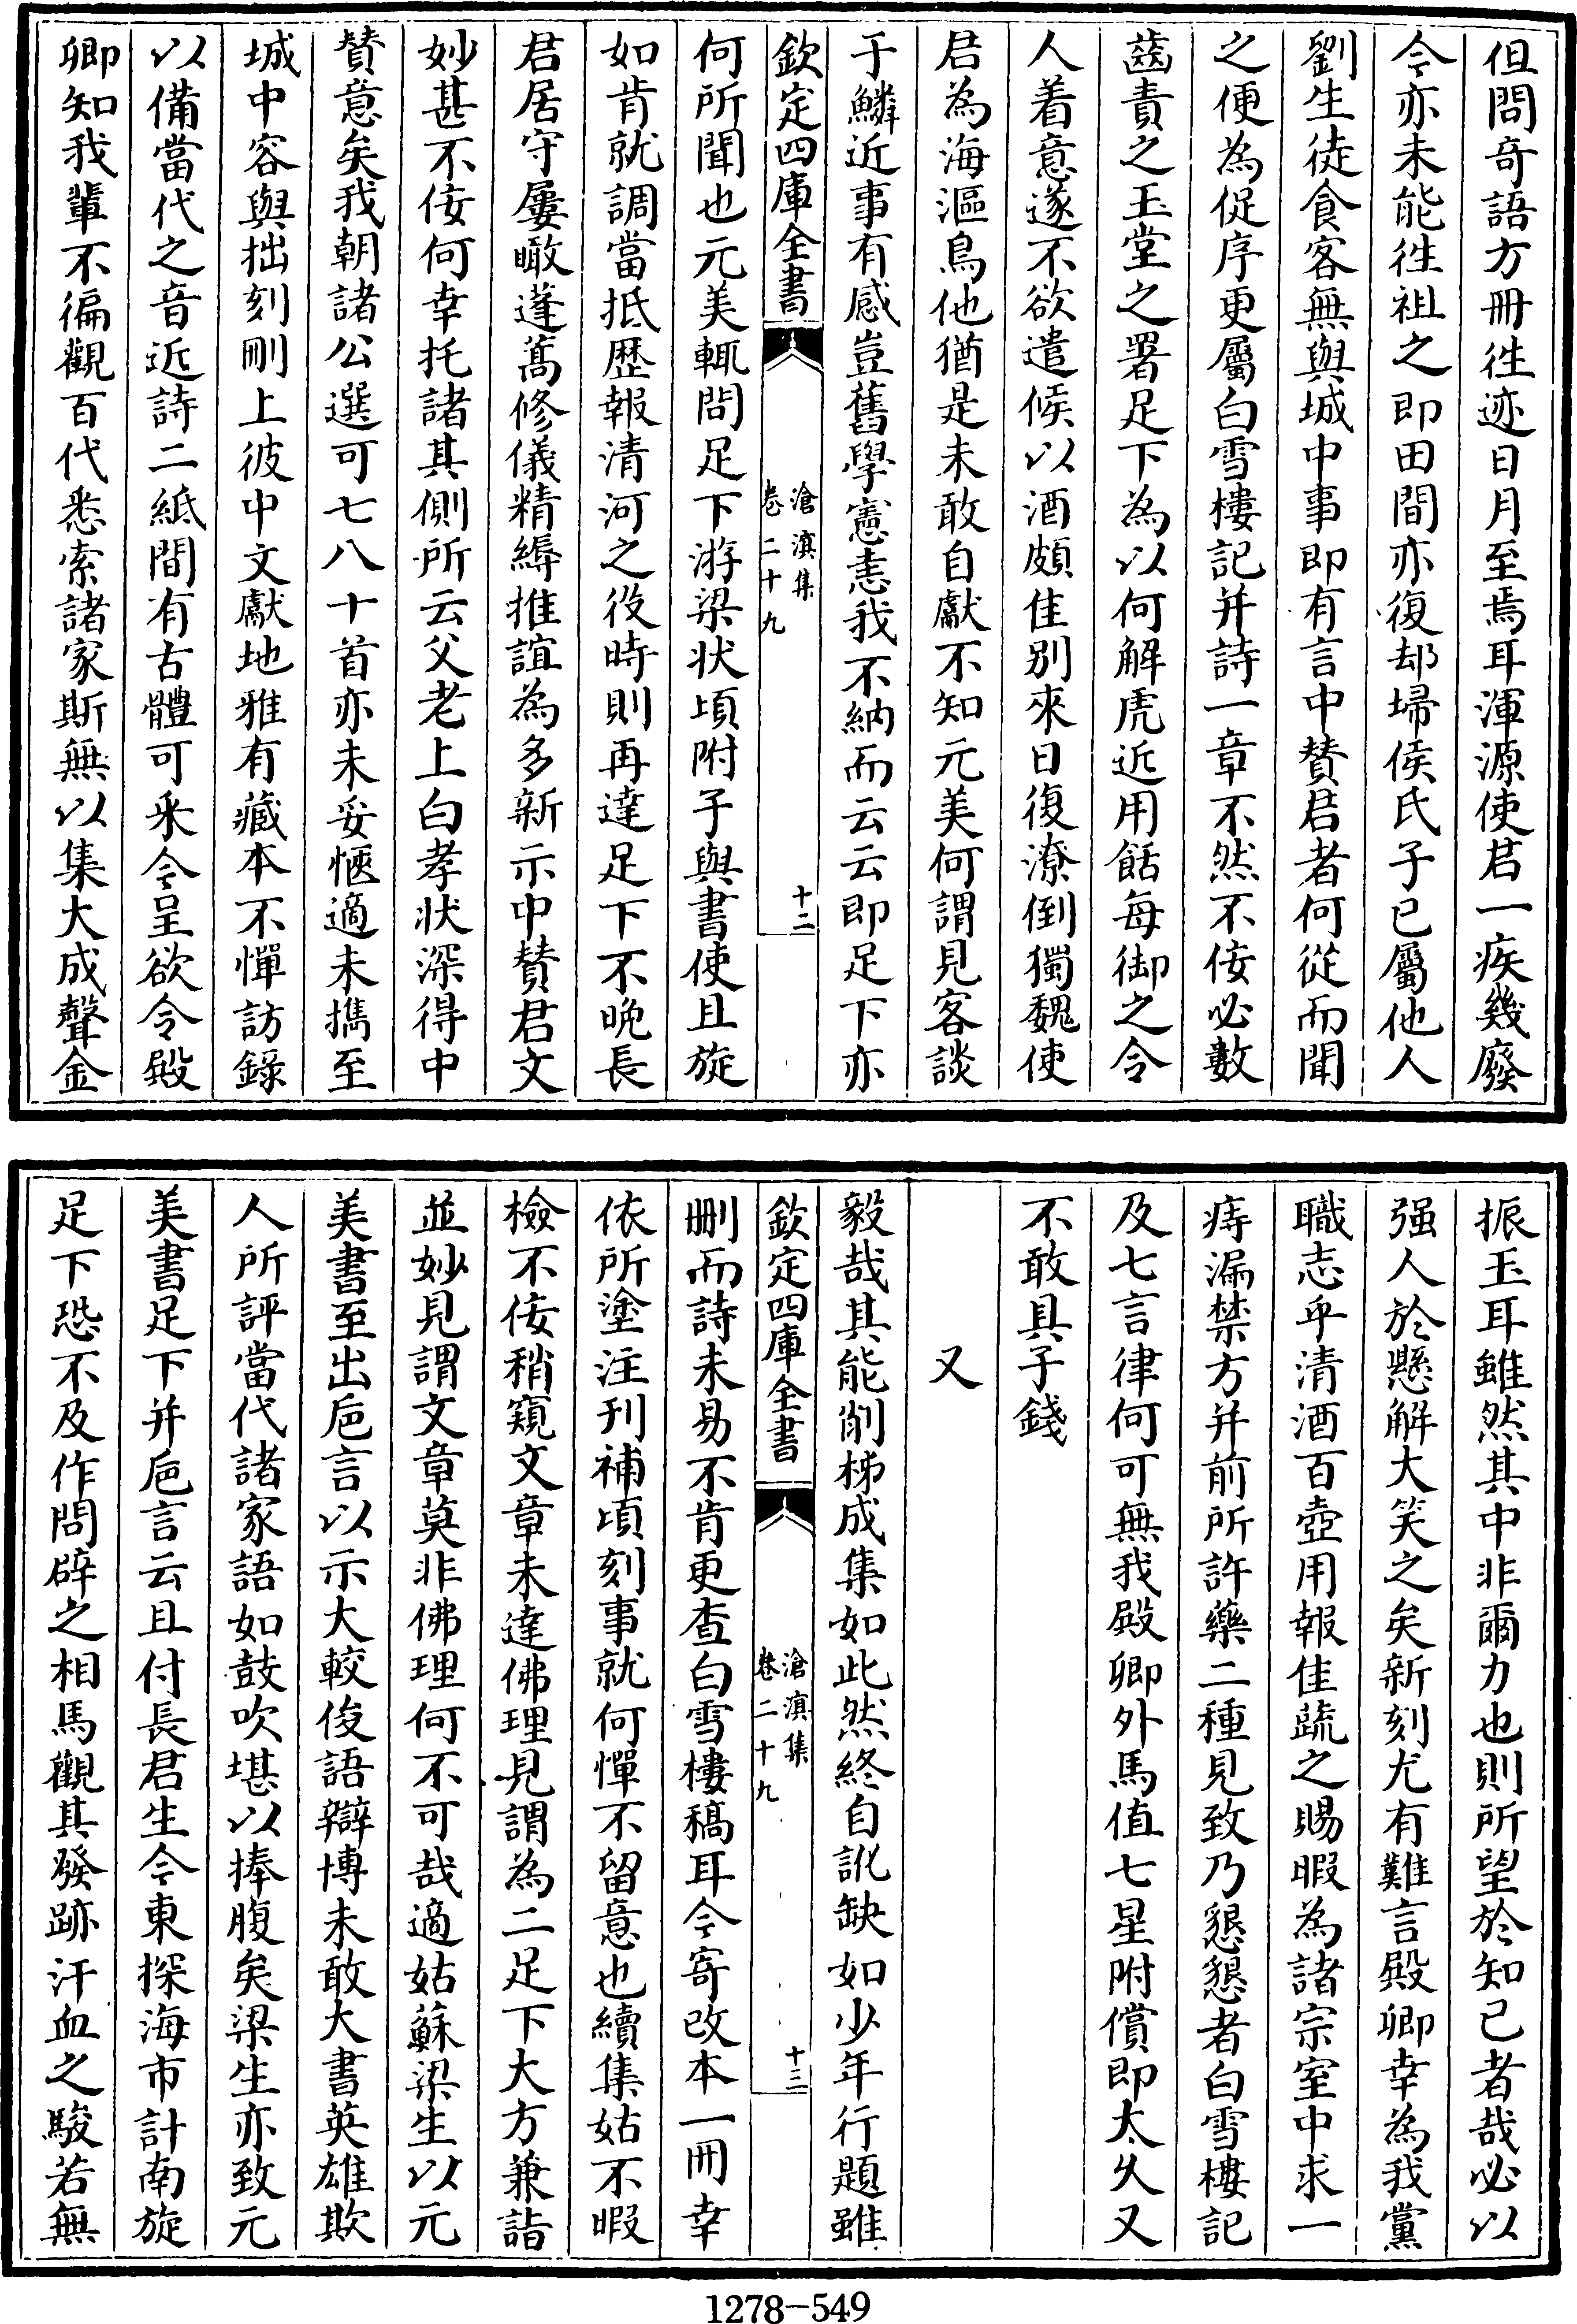 但問奇語方冊徃迹日月至焉耳渾源使君一疾幾廢
今亦未能徃祖之即田間亦復却埽侯氏子已屬他人
劉生徒食客無與城中事即有言中賛君者何從而聞
之便為促序更屬白雪樓記并詩一章不然不佞必數
齒責之玉堂之署足下為以何解虎近用餂每御之令
人着意遂不欲遣候以酒頗佳别來日復潦倒獨魏使
君為海漚鳥他猶是未敢自獻不知元美何謂見客談
于鱗近事有感豈舊學憲恚我不納而云云即足下亦
欽定四庫全書
滄溟集
卷二十九
十二
何所聞也元美輒問足下游梁状頃附子與書使且旋
如肯就調當抵歴報清河之役時則再達足下不晩長
君居守屢瞰蓬蒿修儀精縟推誼為多新示中賛君文
妙甚不佞何幸托諸其側所云父老上白孝状深得中
賛意矣我朝諸公選可七八十首亦未妥愜適未擕至
城中容與拙刻剛上彼中文獻地雅有藏本不憚訪錄
以備當代之音近詩二紙間有古體可采今呈欲令殿
卿知我輩不徧觀百代悉索諸家斯無以集大成聲金
振玉耳雖然其中非爾力也則所望於知己者哉必以
强人於懸解大笑之矣新刻尤有難言殿卿幸為我黨
職志乎清酒百壺用報佳蔬之賜暇為諸宗室中求一
痔漏禁方并前所許藥二種見致乃懇懇者白雪樓記
及七言律何可無我殿卿外馬值七星附償即太久又
不敢具子錢
又
毅哉其能削柹成集如此然終自訛缺如少年行題雖
欽定四庫全書
滄溟集
卷二十九
十三
刪而詩未易不肯更查白雪樓稿耳今寄改本一冊幸
依所塗注刋補頃刻事就何憚不留意也續集姑不暇
檢不佞稍窺文章未達佛理見謂為二足下大方兼詣
並妙見謂文章莫非佛理何不可哉適姑蘇梁生以元
美書至出巵言以示大較俊語辯博未敢大書英雄欺
人所評當代諸家語如鼓吹堪以捧腹矣梁生亦致元
美書足下并巵言云且付長君生今東探海市計南旋
足下恐不及作問辟之相馬觀其發跡汗血之駿若無
1278-549